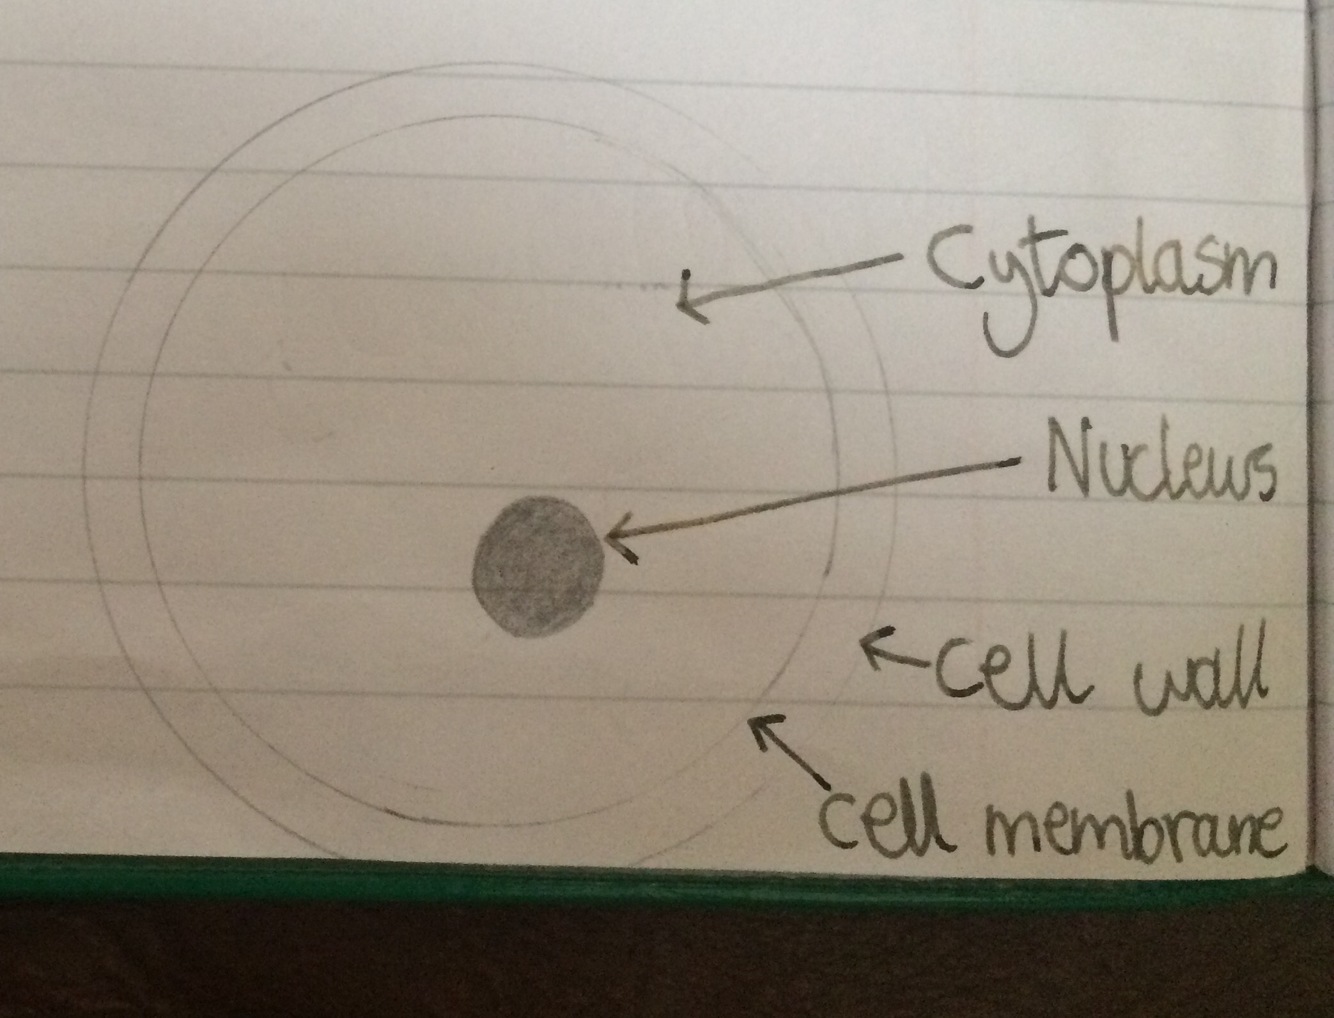 Cytoplasm
Nucleus
cell wall
cell membrane